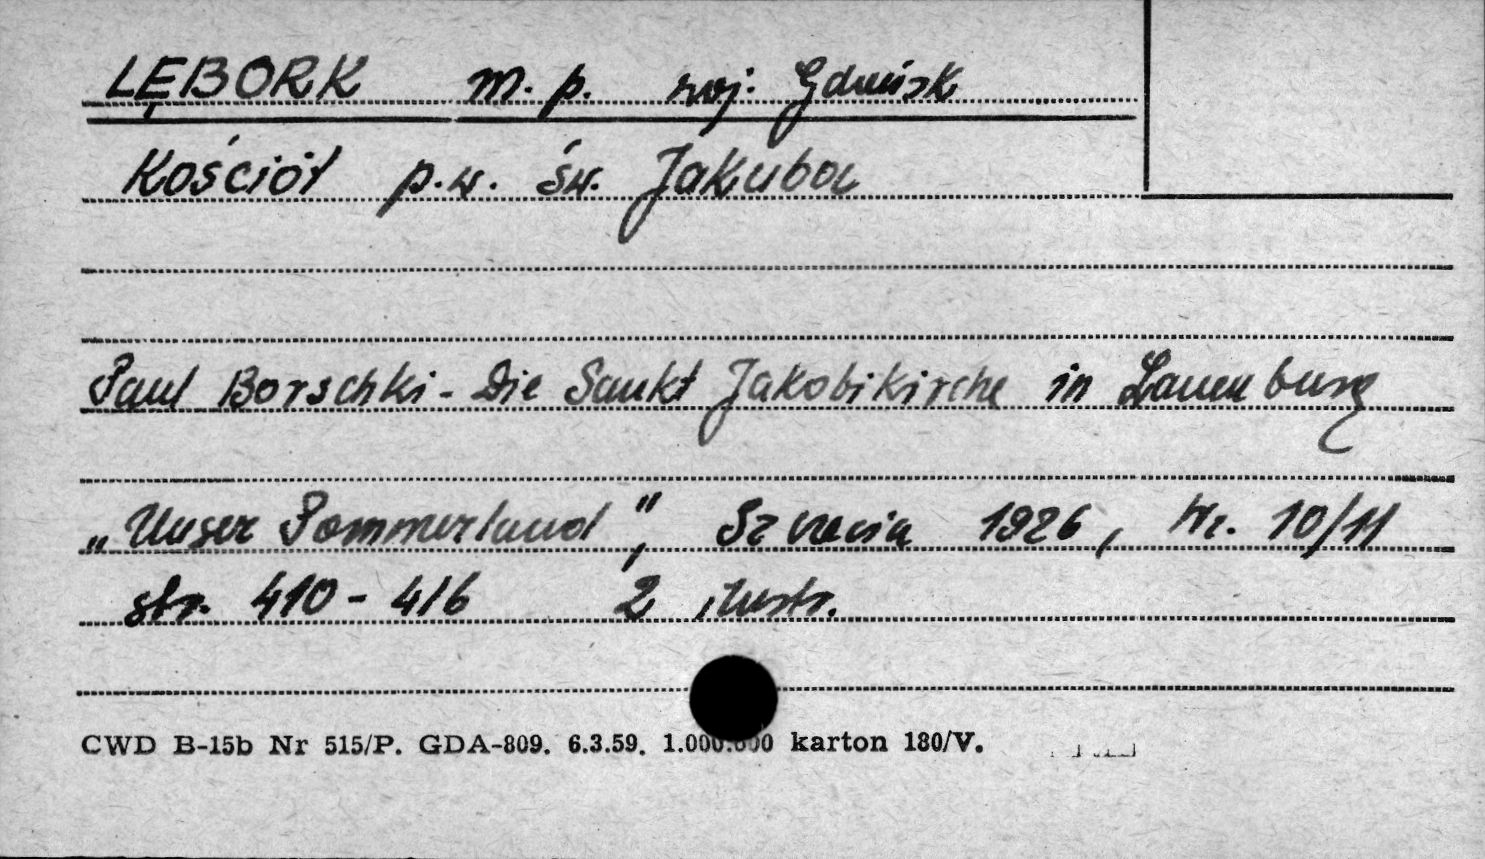 LĘBORK m. p. woj. Gdańsk
Kościół p.w. św. Jakuba
Paul Borschki - Die Sankt Jakobikirche in Lauenburg
„Unser Pommerland", Szczecin 1926, Nr. 10/11
str. 410 - 416 2 ilustr.
CWD B-15b Nr 515/P. GDA-809. 6.3.59. 1.000.000 karton 180/V.